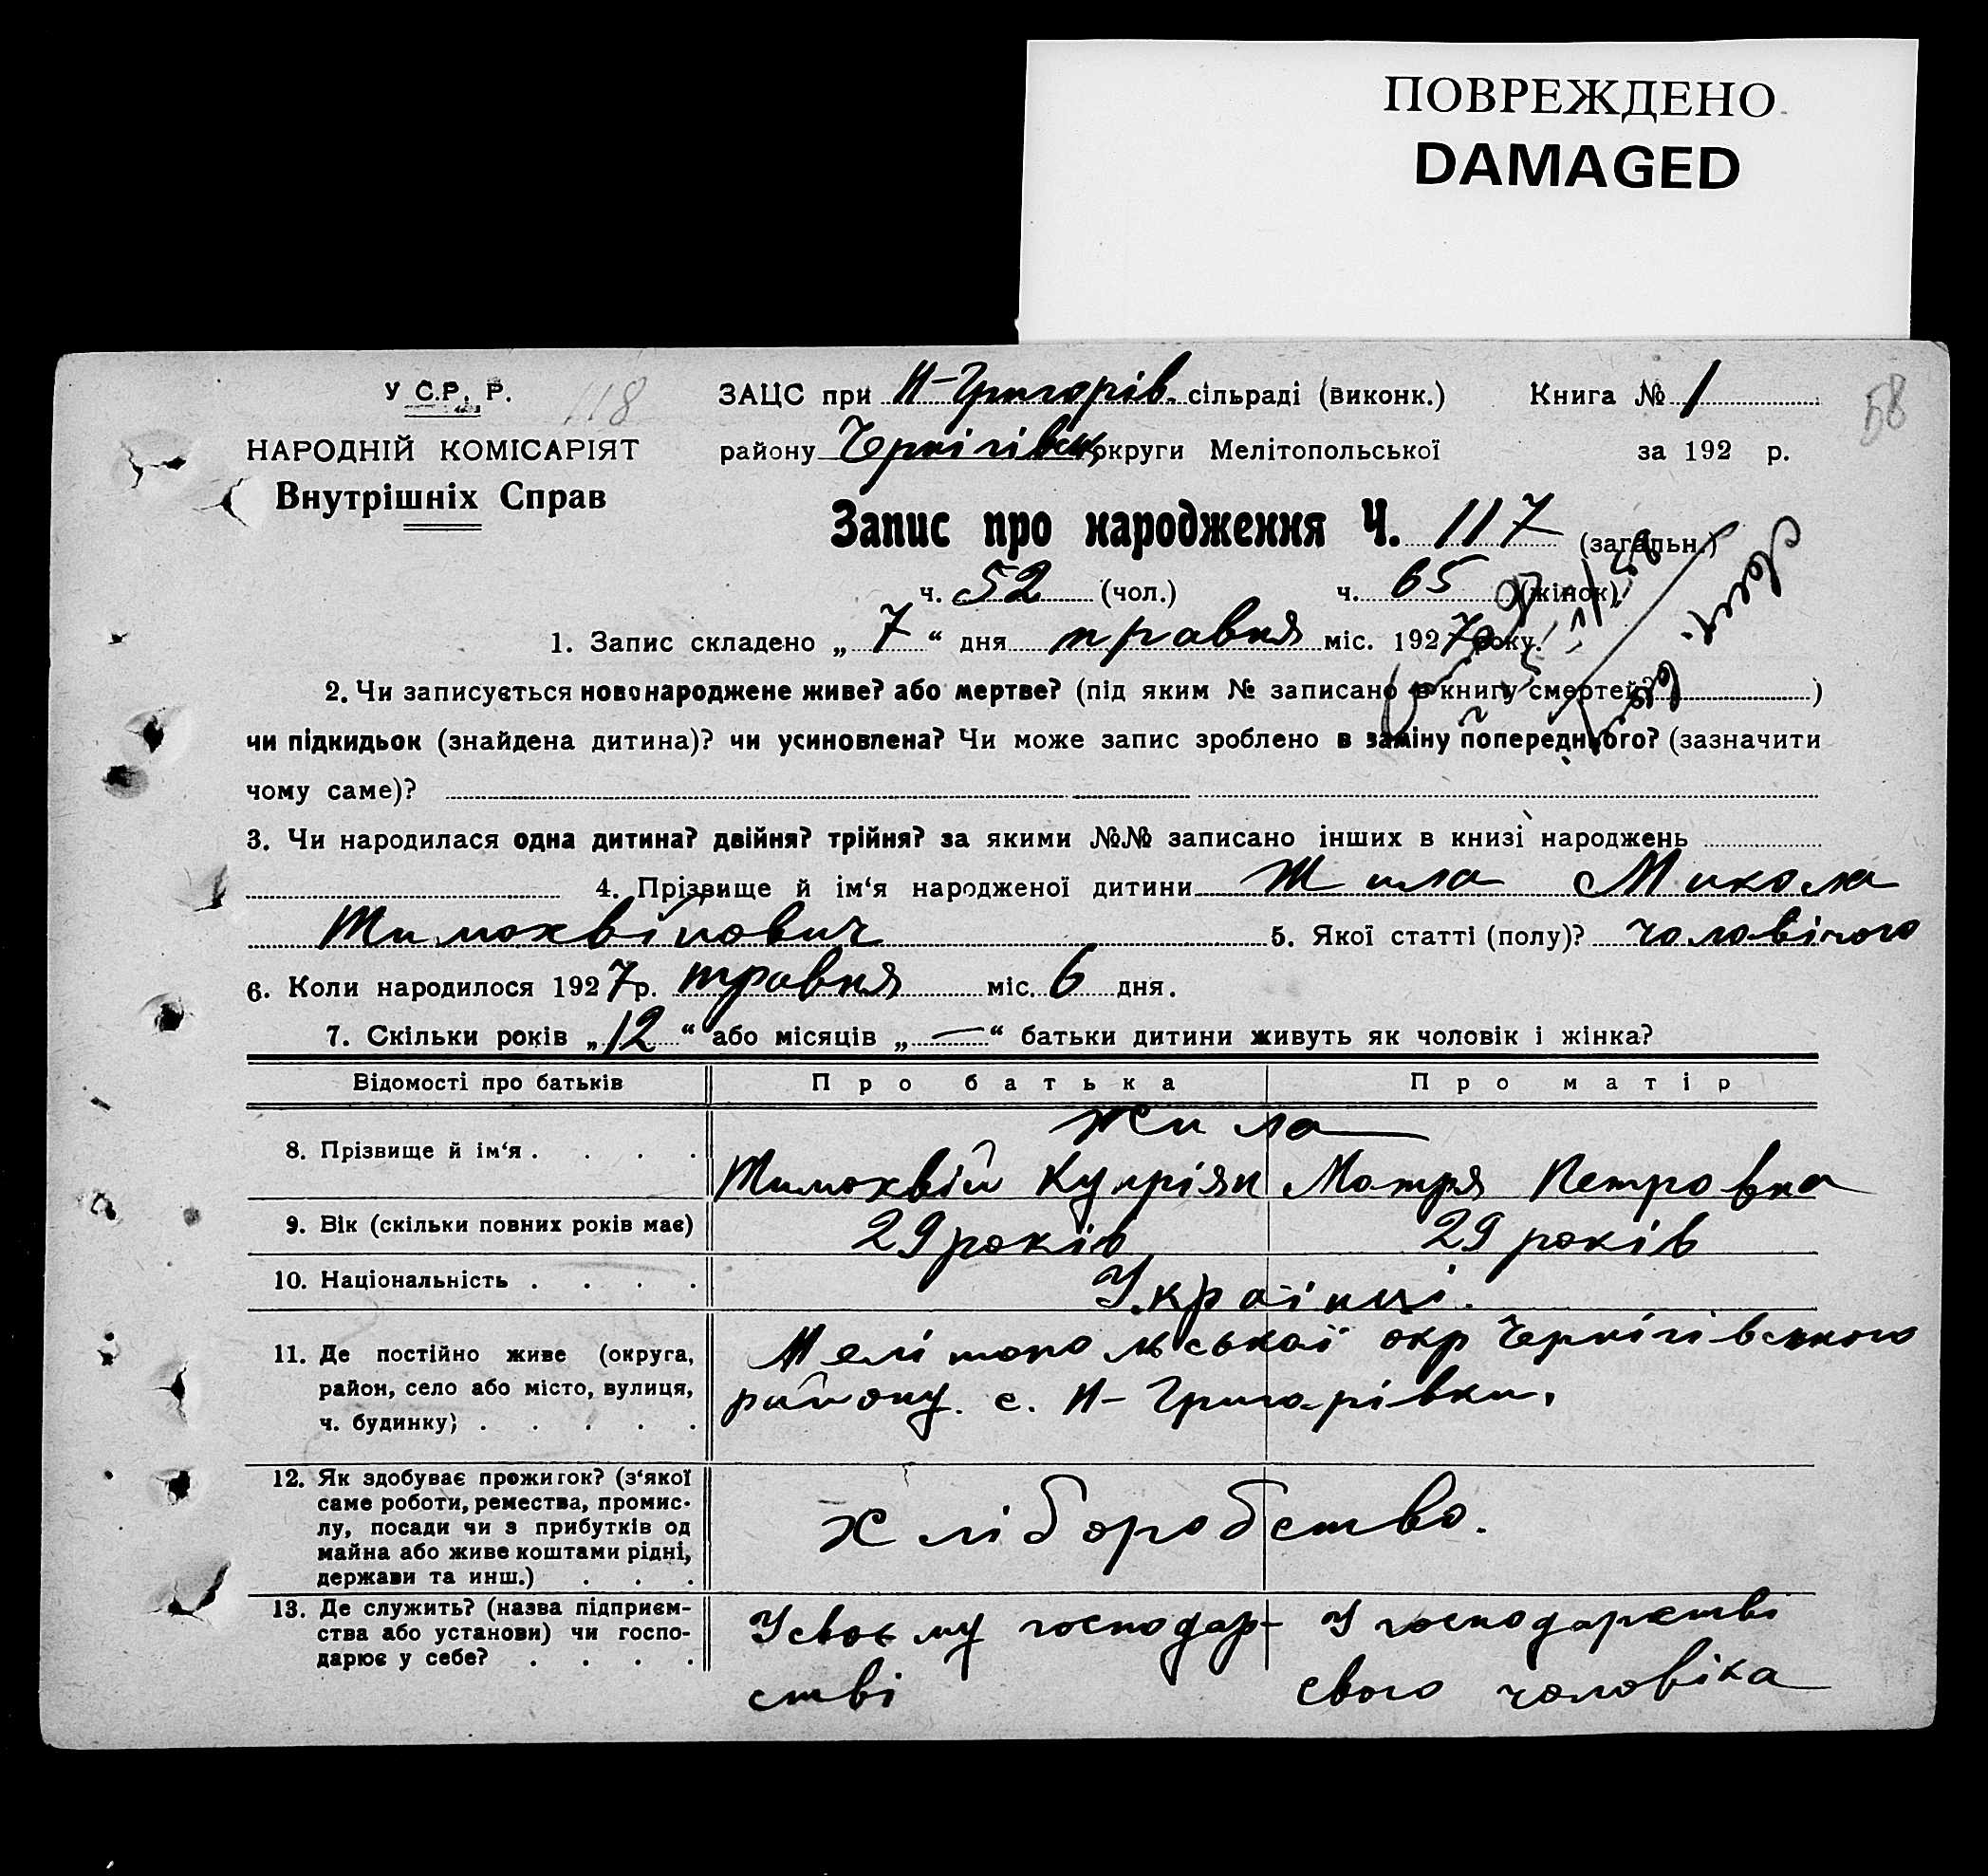 ПОВРЕЖДЕНО
DAMAGED
У С.Р.Р. 118 ЗАЦС при Н-Григорів. сільраді (виконк.) Книга № 1 58
НАРОДНІЙ КОМІСАРІЯТ району Чернігівськ. округи Мелітопольської за 192 р.
Внутрішніх Справ
Запис про народження Ч. 117 (загальн.)
ч. 52 (чол.) ч. 65 (жінок)
1. Запис складено „ 7 “ дня травня міс. 1927 року.
2. Чи записується новонароджене живе? або мертве? (під яким № записано в книгу смертей? )
чи підкидьок (знайдена дитина)? чи усиновлена? Чи може запис зроблено в заміну попереднього? (зазначити
чому саме)?
3. Чи народилася одна дитина? двійня? трійня? за якими №№ записано інших в книзі народжень
4. Прізвище й ім‘я народженої дитини Жила Микола
Тимохвійович 5. Якої статті (полу)? чоловічого
6. Коли народилося 1927 р. травня міс. 6 дня.
7. Скільки років „ 12 “ або місяців „ — “ батьки дитини живуть як чоловік і жінка?
Відомості про батьків Про батька Про матір
Жила
8. Прізвище й ім‘я . . . . Тимохвій Купріян Мотря Петровна
9. Вік (скільки повних років має) 29 років 29 років
10. Національність . . . . Українці.
11. Де постійно живе (округа, Мелітопольської окр Чернігівського
район, село або місто, вулиця, району. с. Н-Григорівки.
ч. будинку) . . . . .
12. Як здобуває прожиток? (з‘якої
саме роботи, ремества, промис-
лу, посади чи з прибутків од Хліборобство.
майна або живе коштами рідні,
держави та инш.) . . .
13. Де служить? (назва підприєм- У своєму господар- У господарстві
ства або установи) чи госпо-
дарює у себе? . . . . стві свого чоловіка